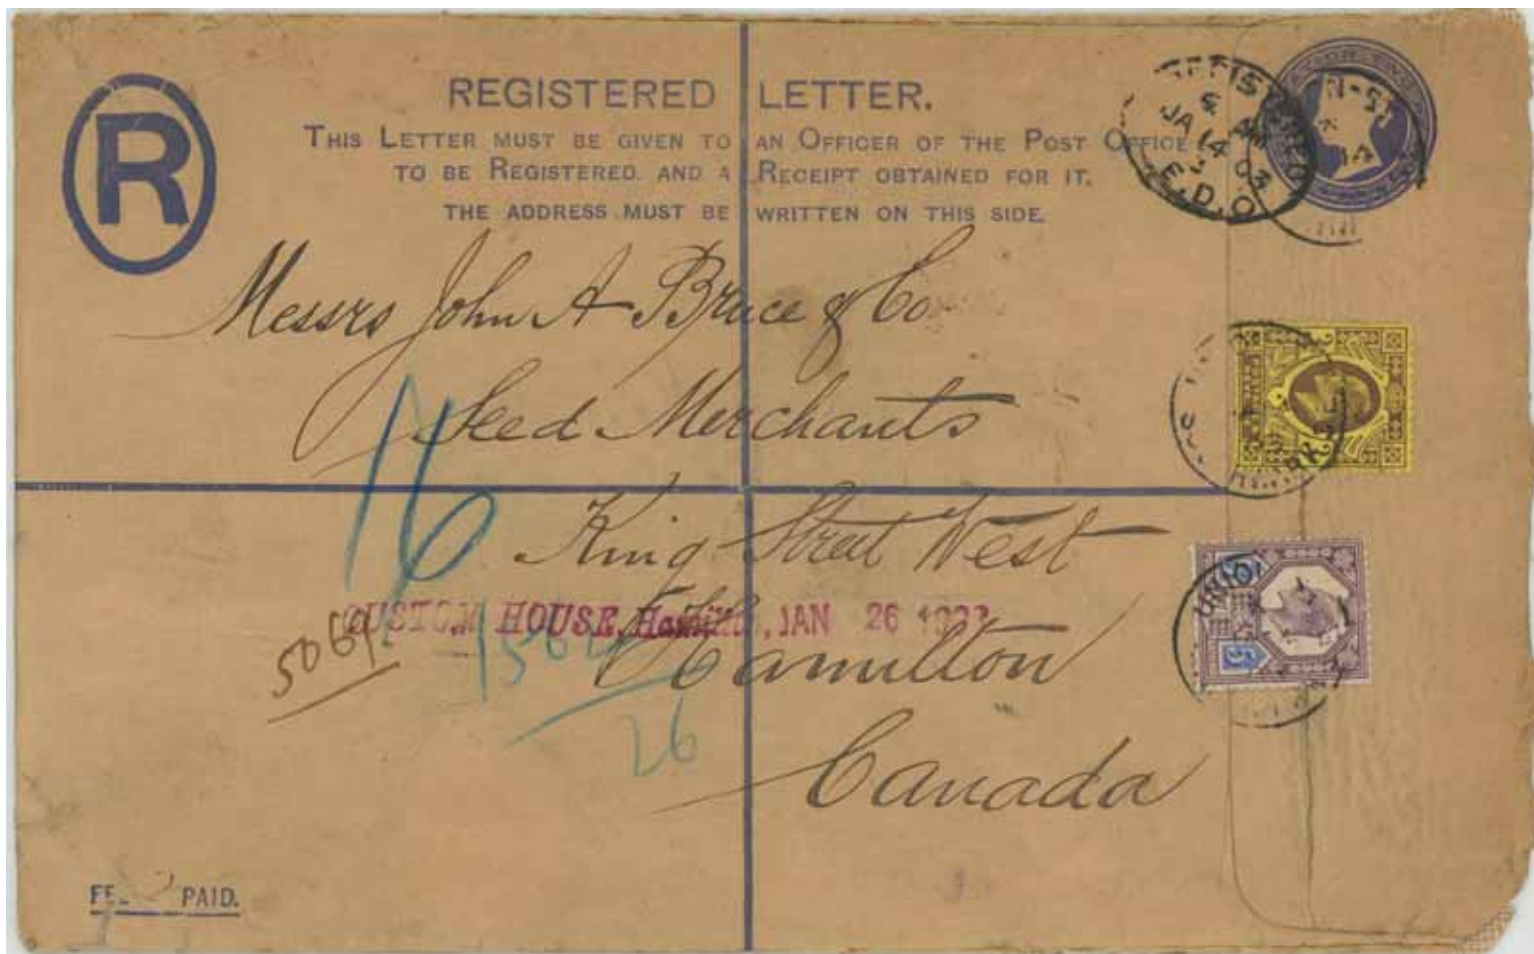 REGISTERED LETTER.
THIS LETTER MUST BE GIVEN TO AN OFFICER OF THE POST OFFICE
TO BE REGISTERED. AND A RECEIPT OBTAINED FOR IT.
THE ADDRESS MUST BE WRITTEN ON THIS SIDE.
R
JA 14 03
E.D.O
Messrs John A Bruce & Co
Seed Merchants
16
King Street West
CUSTOM HOUSE, Hamilton, JAN 26
5064
Hamilton
26
Canada
PAID.